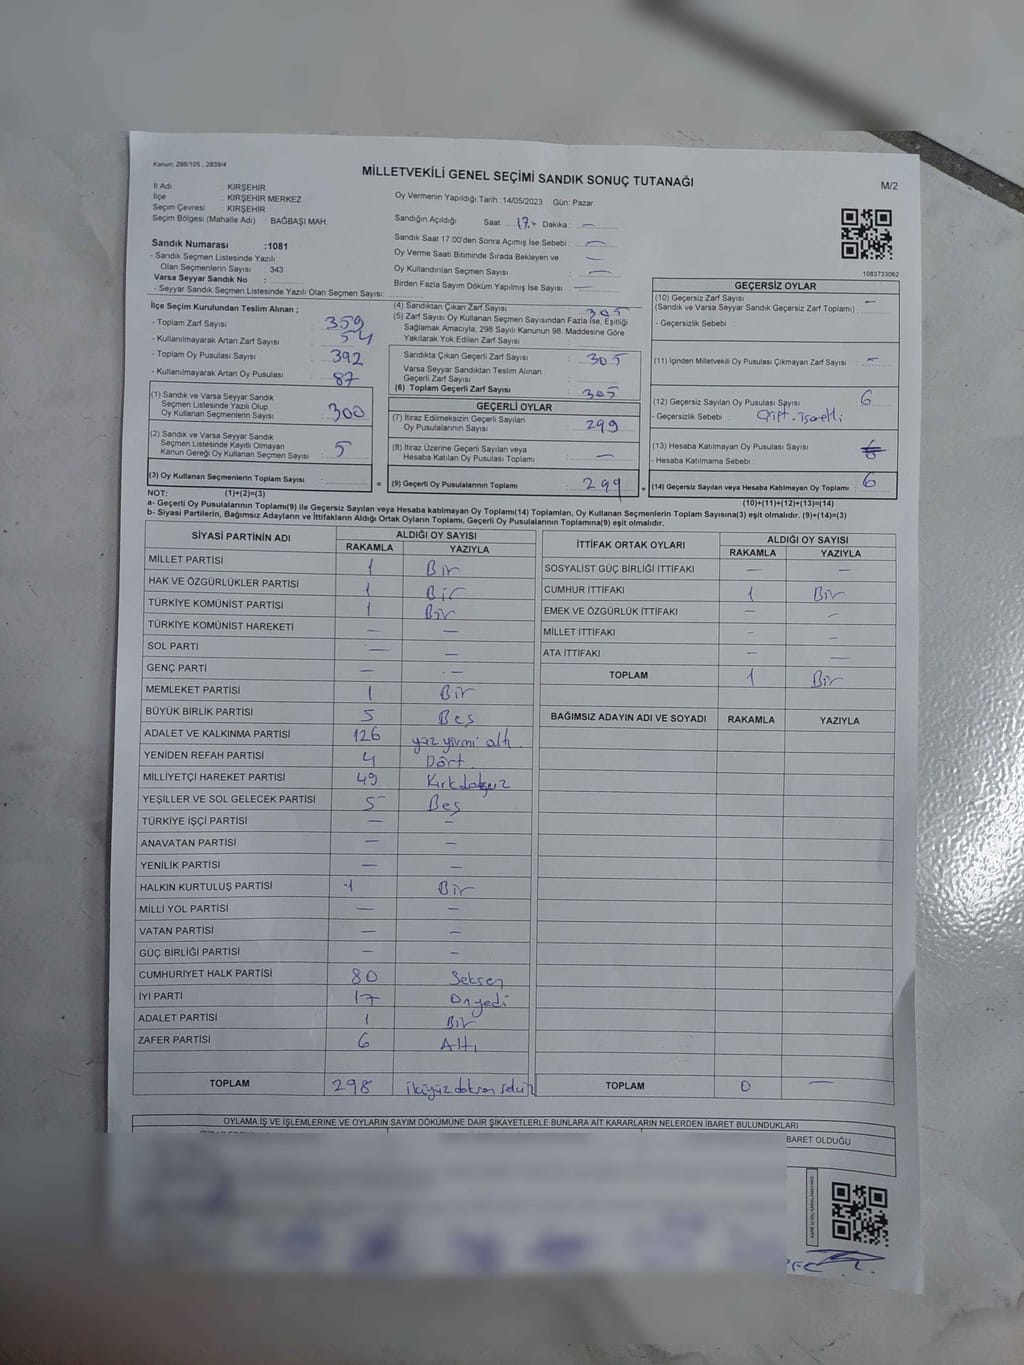 Kanun: 298/105 , 2839/4
MİLLETVEKİLİ GENEL SEÇİMİ SANDIK SONUÇ TUTANAĞI
M/2
İl Adı : KIRŞEHİR
İlçe : KIRŞEHİR MERKEZ
Seçim Çevresi : KIRŞEHİR
Seçim Bölgesi (Mahalle Adı) : BAĞBAŞI MAH.
Oy Vermenin Yapıldığı Tarih :14/05/2023 Gün: Pazar
Sandığın Açıldığı Saat 17.- Dakika : —
Sandık Saat 17:00'den Sonra Açımış İse Sebebi : —
Oy Verme Saati Bitiminde Sırada Bekleyen ve —
Oy Kullandırılan Seçmen Sayısı : —
Birden Fazla Sayım Döküm Yapılmış İse Sayısı : —
Sandık Numarası :1081
- Sandık Seçmen Listesinde Yazılı
Olan Seçmenlerin Sayısı : 343
Varsa Seyyar Sandık No :
- Seyyar Sandık Seçmen Listesinde Yazılı Olan Seçmen Sayısı:
1083733062
İlçe Seçim Kurulundan Teslim Alınan ;
- Toplam Zarf Sayısı : 359
- Kullanılmayarak Artan Zarf Sayısı : 54
- Toplam Oy Pusulası Sayısı : 392
- Kullanılmayarak Artan Oy Pusulası : 87
(1) Sandık ve Varsa Seyyar Sandık
Seçmen Listesinde Yazılı Olup
Oy Kullanan Seçmenlerin Sayısı : 300
(2) Sandık ve Varsa Seyyar Sandık
Seçmen Listesinde Kayıtlı Olmayan
Kanun Gereği Oy Kullanan Seçmen Sayısı : 5
(3) Oy Kullanan Seçmenlerin Toplam Sayısı :
(4) Sandıktan Çıkan Zarf Sayısı : 305
(5) Zarf Sayısı Oy Kullanan Seçmen Sayısından Fazla İse, Eşitliği
Sağlamak Amacıyla; 298 Sayılı Kanunun 98. Maddesine Göre
Yakılarak Yok Edilen Zarf Sayısı :
Sandıkta Çıkan Geçerli Zarf Sayısı : 305
Varsa Seyyar Sandıktan Teslim Alınan
Geçerli Zarf Sayısı :
(6) Toplam Geçerli Zarf Sayısı : 305
GEÇERLİ OYLAR
(7) İtiraz Edilmeksizin Geçerli Sayılan
Oy Pusulalarının Sayısı : 299
(8) İtiraz Üzerine Geçerli Sayılan veya
Hesaba Katılan Oy Pusulası Toplamı : —
= (9) Geçerli Oy Pusulalarının Toplamı : 299 +
GEÇERSİZ OYLAR
(10) Geçersiz Zarf Sayısı —
(Sandık ve Varsa Seyyar Sandık Geçersiz Zarf Toplamı) :
- Geçersizlik Sebebi :
(11) İçinden Milletvekili Oy Pusulası Çıkmayan Zarf Sayısı : —
(12) Geçersiz Sayılan Oy Pusulası Sayısı : 6
- Geçersizlik Sebebi : Çift işaretli
(13) Hesaba Katılmayan Oy Pusulası Sayısı :
- Hesaba Katılmama Sebebi :
(14) Geçersiz Sayılan veya Hesaba Katılmayan Oy Toplamı : 6
NOT: (1)+(2)=(3)
(10)+(11)+(12)+(13)=(14)
a- Geçerli Oy Pusulalarının Toplamı(9) ile Geçersiz Sayılan veya Hesaba katılmayan Oy Toplamı(14) Toplamları, Oy Kullanan Seçmenlerin Toplam Sayısına(3) eşit olmalıdır. (9)+(14)=(3)
b- Siyasi Partilerin, Bağımsız Adayların ve İttifakların Aldığı Ortak Oyların Toplamı, Geçerli Oy Pusulalarının Toplamına(9) eşit olmalıdır.
SİYASİ PARTİNİN ADI ALDIĞI OY SAYISI
RAKAMLA YAZIYLA
MİLLET PARTİSİ 1 Bir
HAK VE ÖZGÜRLÜKLER PARTİSİ 1 Bir
TÜRKİYE KOMÜNİST PARTİSİ 1 Bir
TÜRKİYE KOMÜNİST HAREKETİ — —
SOL PARTİ — —
GENÇ PARTİ — —
MEMLEKET PARTİSİ 1 Bir
BÜYÜK BİRLİK PARTİSİ 5 Beş
ADALET VE KALKINMA PARTİSİ 126 yüz yirmi altı
YENİDEN REFAH PARTİSİ 4 Dört
MİLLİYETÇİ HAREKET PARTİSİ 49 Kırkdokuz
YEŞİLLER VE SOL GELECEK PARTİSİ 5 Beş
TÜRKİYE İŞÇİ PARTİSİ — —
ANAVATAN PARTİSİ — —
YENİLİK PARTİSİ — —
HALKIN KURTULUŞ PARTİSİ 1 Bir
MİLLİ YOL PARTİSİ — —
VATAN PARTİSİ — —
GÜÇ BİRLİĞİ PARTİSİ — —
CUMHURİYET HALK PARTİSİ 80 Seksen
İYİ PARTİ 17 Onyedi
ADALET PARTİSİ 1 Bir
ZAFER PARTİSİ 6 Altı
TOPLAM 298 ikiyüz doksan sekiz
İTTİFAK ORTAK OYLARI ALDIĞI OY SAYISI
RAKAMLA YAZIYLA
SOSYALİST GÜÇ BİRLİĞİ İTTİFAKI — —
CUMHUR İTTİFAKI 1 Bir
EMEK VE ÖZGÜRLÜK İTTİFAKI — —
MİLLET İTTİFAKI — —
ATA İTTİFAKI — —
TOPLAM 1 Bir
BAĞIMSIZ ADAYIN ADI VE SOYADI RAKAMLA YAZIYLA
TOPLAM 0 —
OYLAMA İŞ VE İŞLEMLERİNE VE OYLARIN SAYIM DÖKÜMÜNE DAİR ŞİKAYETLERLE BUNLARA AİT KARARLARIN NELERDEN İBARET BULUNDUKLARI
BARET OLDUĞU